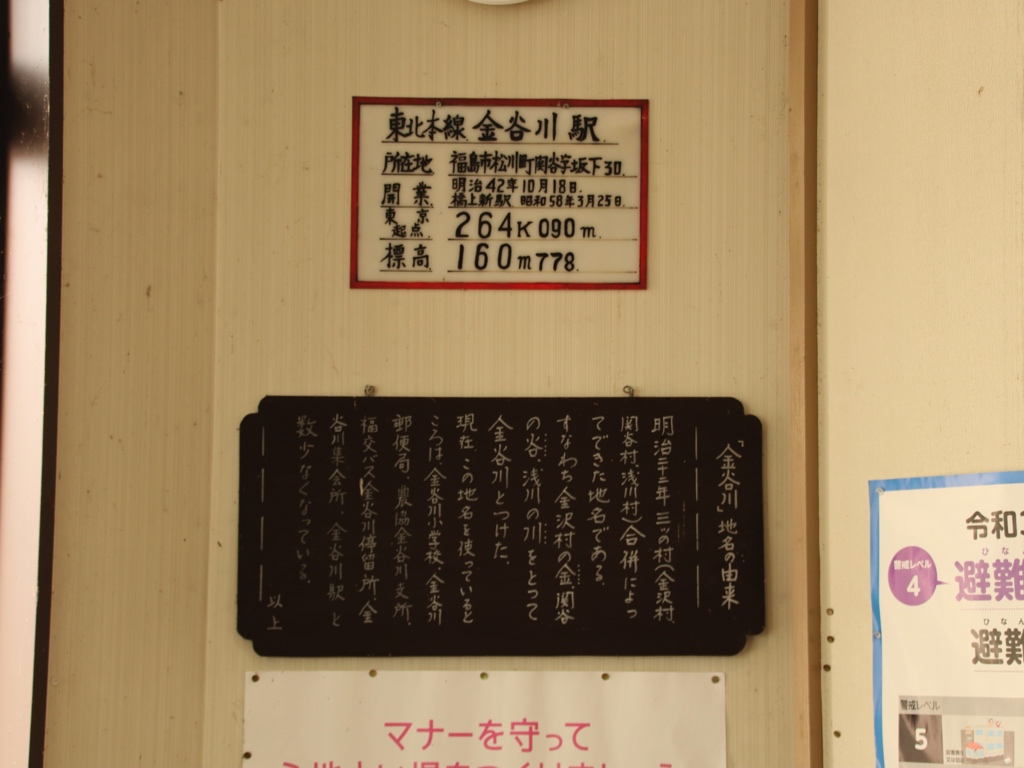 東北本線 金谷川 駅
所在地 福島市松川町関谷字坂下30.
開業 明治42年10月18日.
橋上新駅 昭和58年3月25日.
東京起点 264K090m.
標高 160m778.
「金谷川」地名の由来
明治二十二年 三ツの村(金沢村.
関谷村.浅川村)合併によっ
てできた地名である.
すなわち金沢村の金.関谷
の谷.浅川の川をとって
金谷川とつけた.
現在.この地名を使っていると
ころは.金谷川小学校.金谷川
郵便局.農協金谷川支所.
福交バス金谷川停留所.金
谷川集会所.金谷川駅と
数少なくなっている.
以上
マナーを守って
令和
ひなん
警戒レベル
4
避難
ひなん
避難
警戒レベル
5